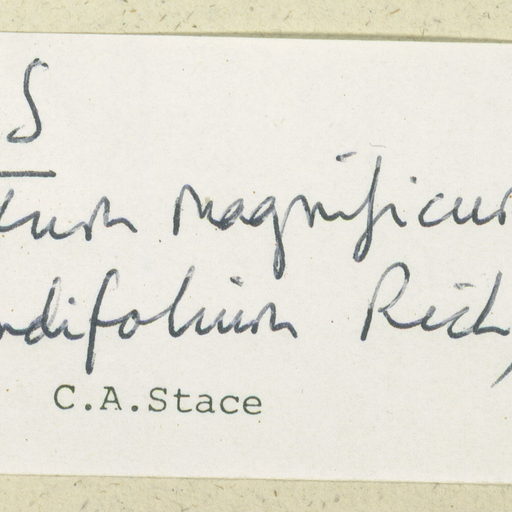 S
tum magnificum
ndifolium Rich,
C.A.Stace